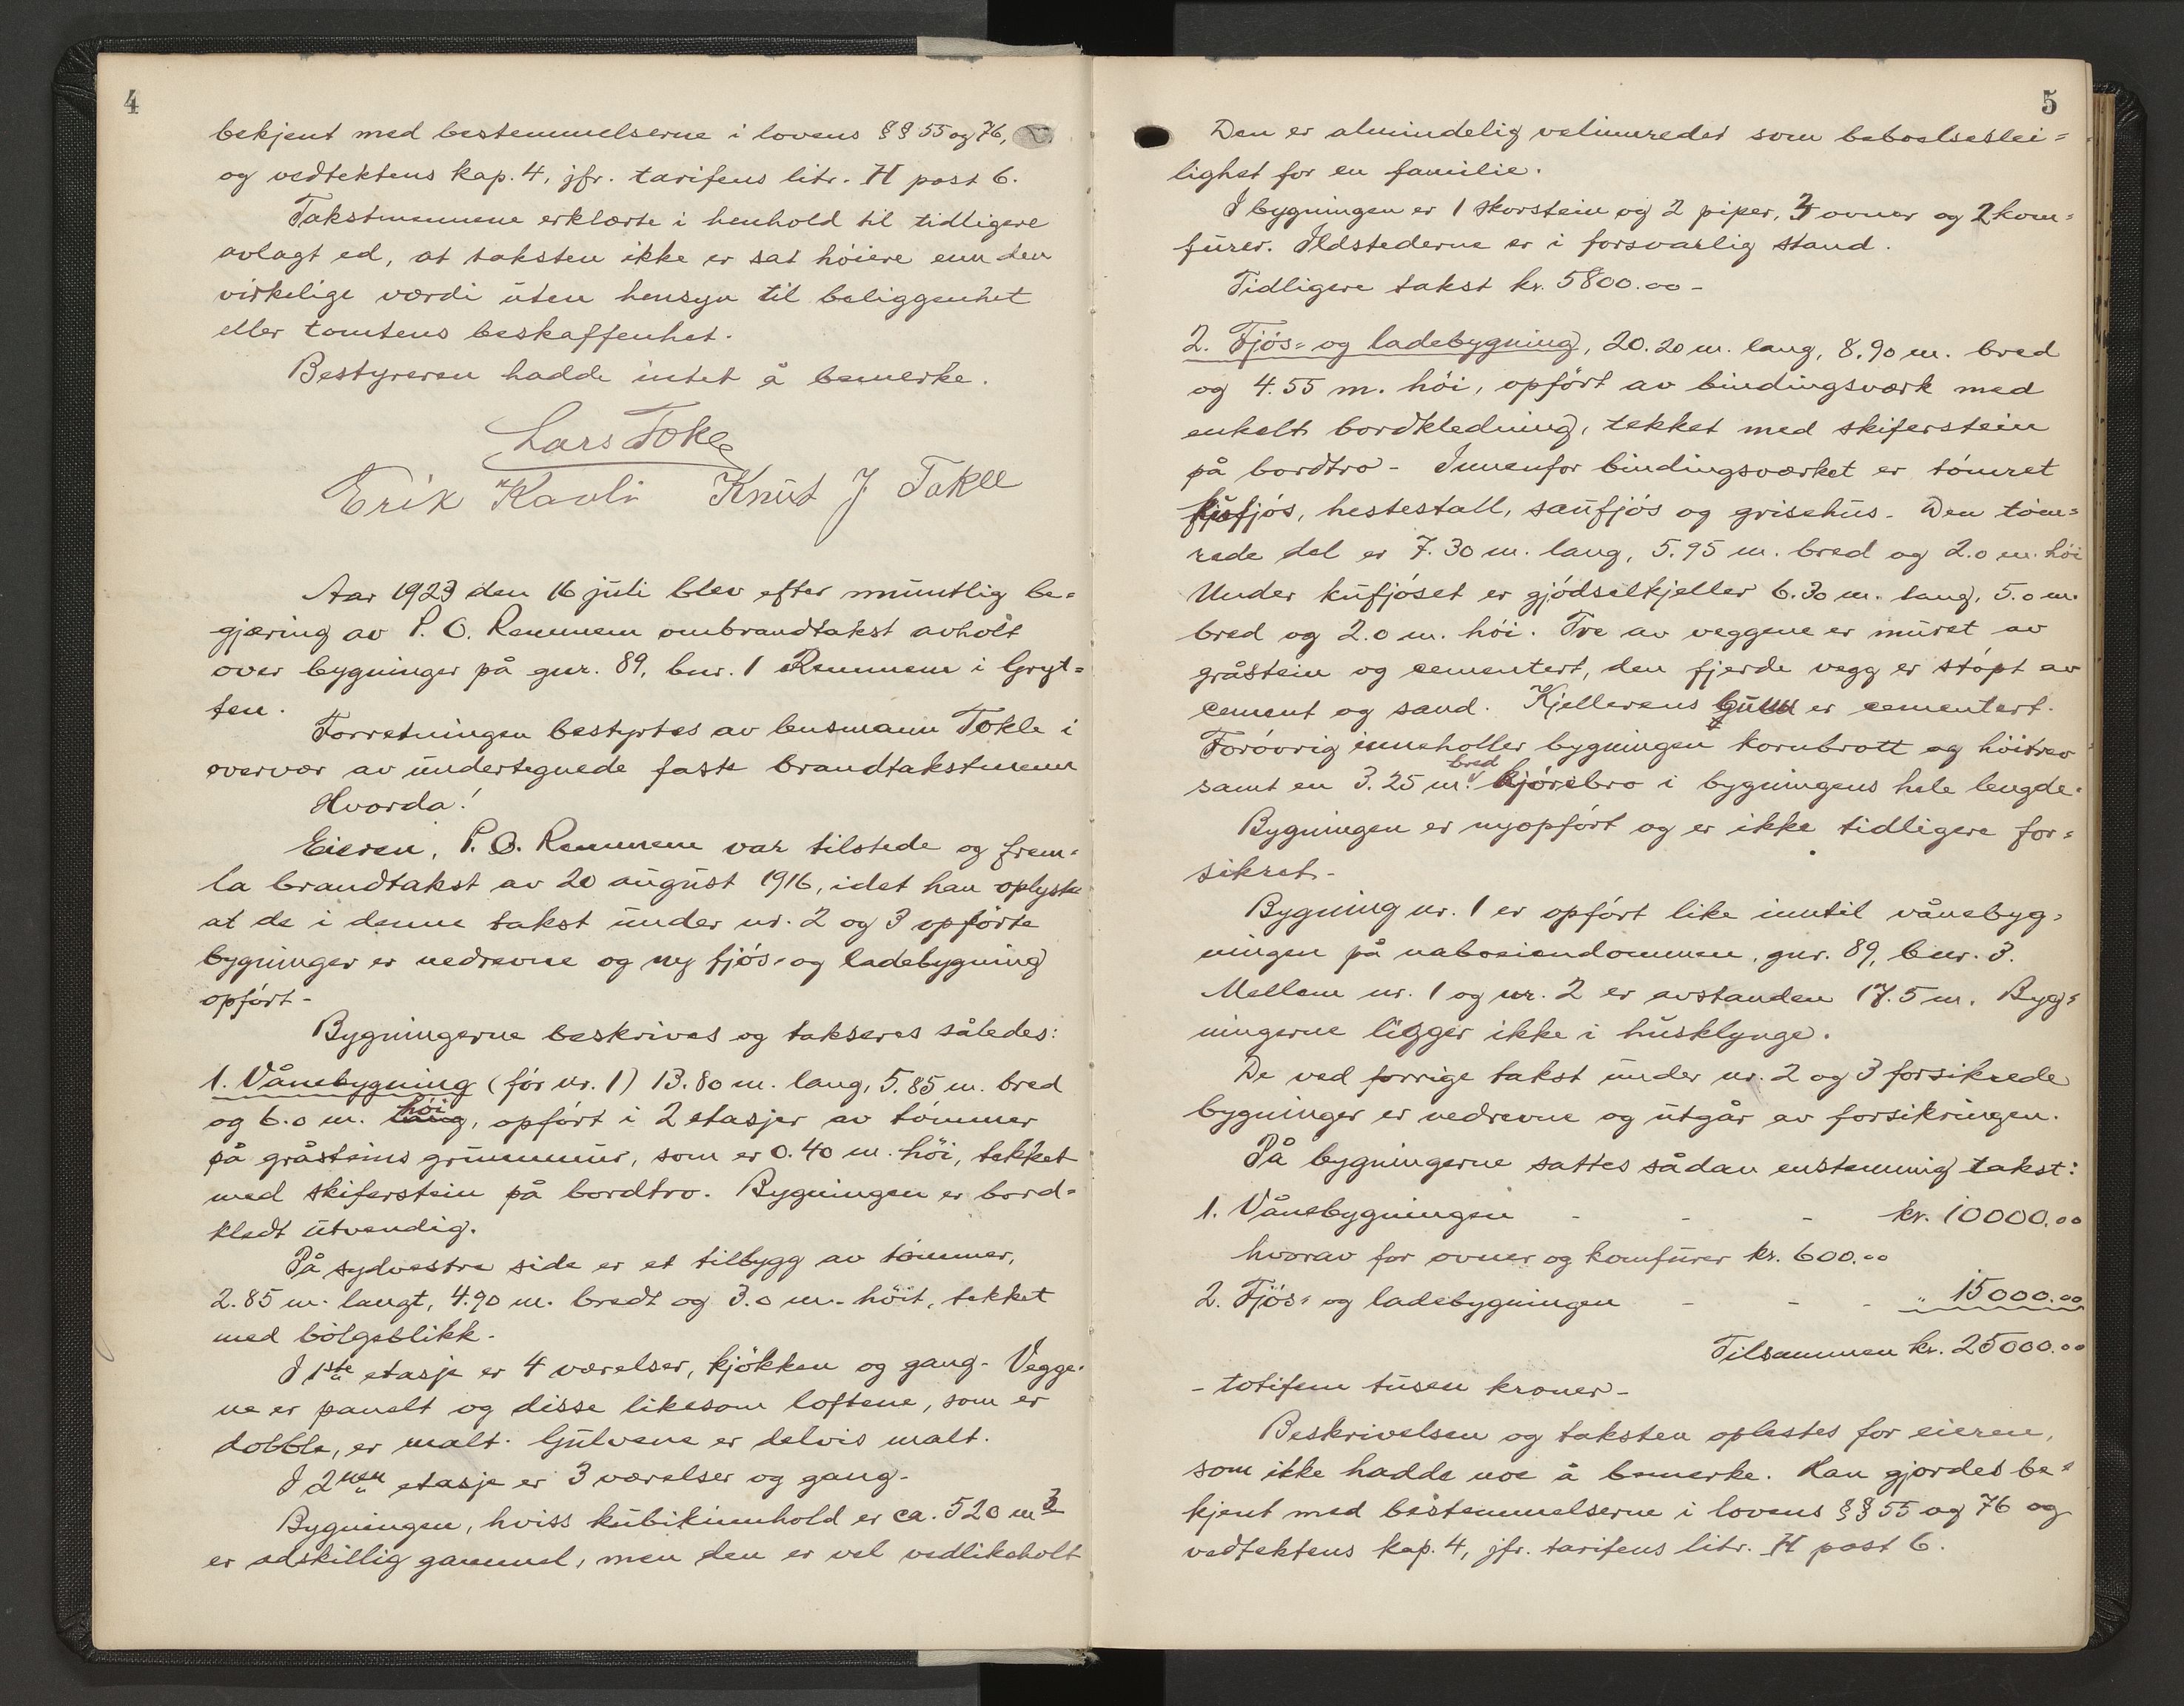 4
bekjent med bestemmelserne i lovens §§ 55 og 76,
og vedtektens kap. 4, jfr. tarifens litr. H post 6.
Takstmennene erklærte i henhold til tidligere
avlagt ed, at taksten ikke er sat höiere enn den
virkelige værdi uten hensyn til beliggenhet
eller tomtens beskaffenhet.
Bestyreren hadde intet å bemerke.
Lars Tokle
Erik Kavli Knut J Tokle
Aar 1923 den 16 juli blev efter muntlig be=
gjæring av P. O. Remmem ombrandtakst avholt
over bygninger på gnr. 89, bnr. 1 Remmem i Gryt=
ten.
Forretningen bestyrtes av lensmann Tokle i
overvær av undertegnede faste brandtakstmenn
Hvorda!
Eieren, P. O. Remmem var tilstede og frem=
la brandtakst av 20 august 1916, idet han oplyste
at de i denne takst under nr. 2 og 3 opförte
bygninger er nedrevne og ny fjös- og ladebygning
opfört -
Bygningerne beskrives og takseres således:
1. Vånebygning (för nr. 1) 13.80 m. lang, 5.85 m. bred
og 6.0 m. lang höi, opfört i 2 etasjer av tömmer
på gråsteins grunnmur, som er 0.40 m. höi, tekket
med skiferstein på bordtro. Bygningen er bord=
kledt utvendig.
På sydvestre side er et tilbygg av tömmer,
2.85 m. langt, 4.90 m. bredt og 3.0 m. höit, tekket
med bölgeblikk.
I 1ste etasje er 4 værelser, kjökken og gang. Vegge=
ne er panelt og disse likesom loftene, som er
dobble, er malt. Gulvene er delvis malt.
I 2nen etasje er 3 værelser og gang.
Bygningen, hviss kubikinnhold er ca. 520 m3
er adskillig gammel, men den er vel vedlikeholt
5
Den er almindelig velinnredet som beboelseslei=
lighet for en familie.
I bygningen er 1 skorstein og 2 piper, 3 ovner og 2 kom=
fürer. Ildstederne er i forsvarlig stand.
Tidligere takst kr. 5800.00 -
2. Fjös= og ladebygning, 20.20 m. lang, 8.90 m. bred
og 4.55 m. höi, opfört av bindingsværk med
enkelt bordkledning, tekket med skiferstein
på bordtro - Innenfor bindingsværket er tömret
kufjós, hestestall, saufjós og grisehus. Den töm=
rede del er 7.30 m. lang, 5.95 m. bred og 2.0 m. höi
Under kufjóset er gjödselkjeller 6.30 m. lang, 5.0 m.
bred og 2.0 m. höi. Tre av veggene er muret av
gråstein og cementert, den fjerde vegg er stöpt av
cement og sand. Kjellerens gulv er cementert.
Foróvrig inneholler bygningen kornbrott og höitrev
samt en 3.25 m. bred kjörebro i bygningens hele lengde.
Bygningen er nyopfört og er ikke tidligere for=
sikret.
Bygning nr. 1 er opfört like inntil vånebyg=
ningen på naboeiendommen, gnr. 89, bnr. 3.
Mellem nr. 1 og nr. 2 er avstanden 17.5 m. Byg=
ningerne ligger ikke i husklynge.
De ved forrige takst under nr. 2 og 3 forsikrede
bygninger er nedrevne og utgår av forsikringen.
På bygningerne sattes sådan enstemmig takst:
1. Vånebygningen - - - kr. 10000.00
hvorav for ovner og komfürer kr. 600.00
2. Fjös= og ladebygningen - - - " 15000.00
Tilsammen kr. 25000.00
- totifem tusen kroner -
Beskrivelsen og taksten oplestes for eieren,
som ikke hadde noe å bemerke. Han gjordes be=
kjent med bestemmelserne i lovens §§ 55 og 76 og
vedtektens kap. 4, jfr. tarifens litr. H post 6.